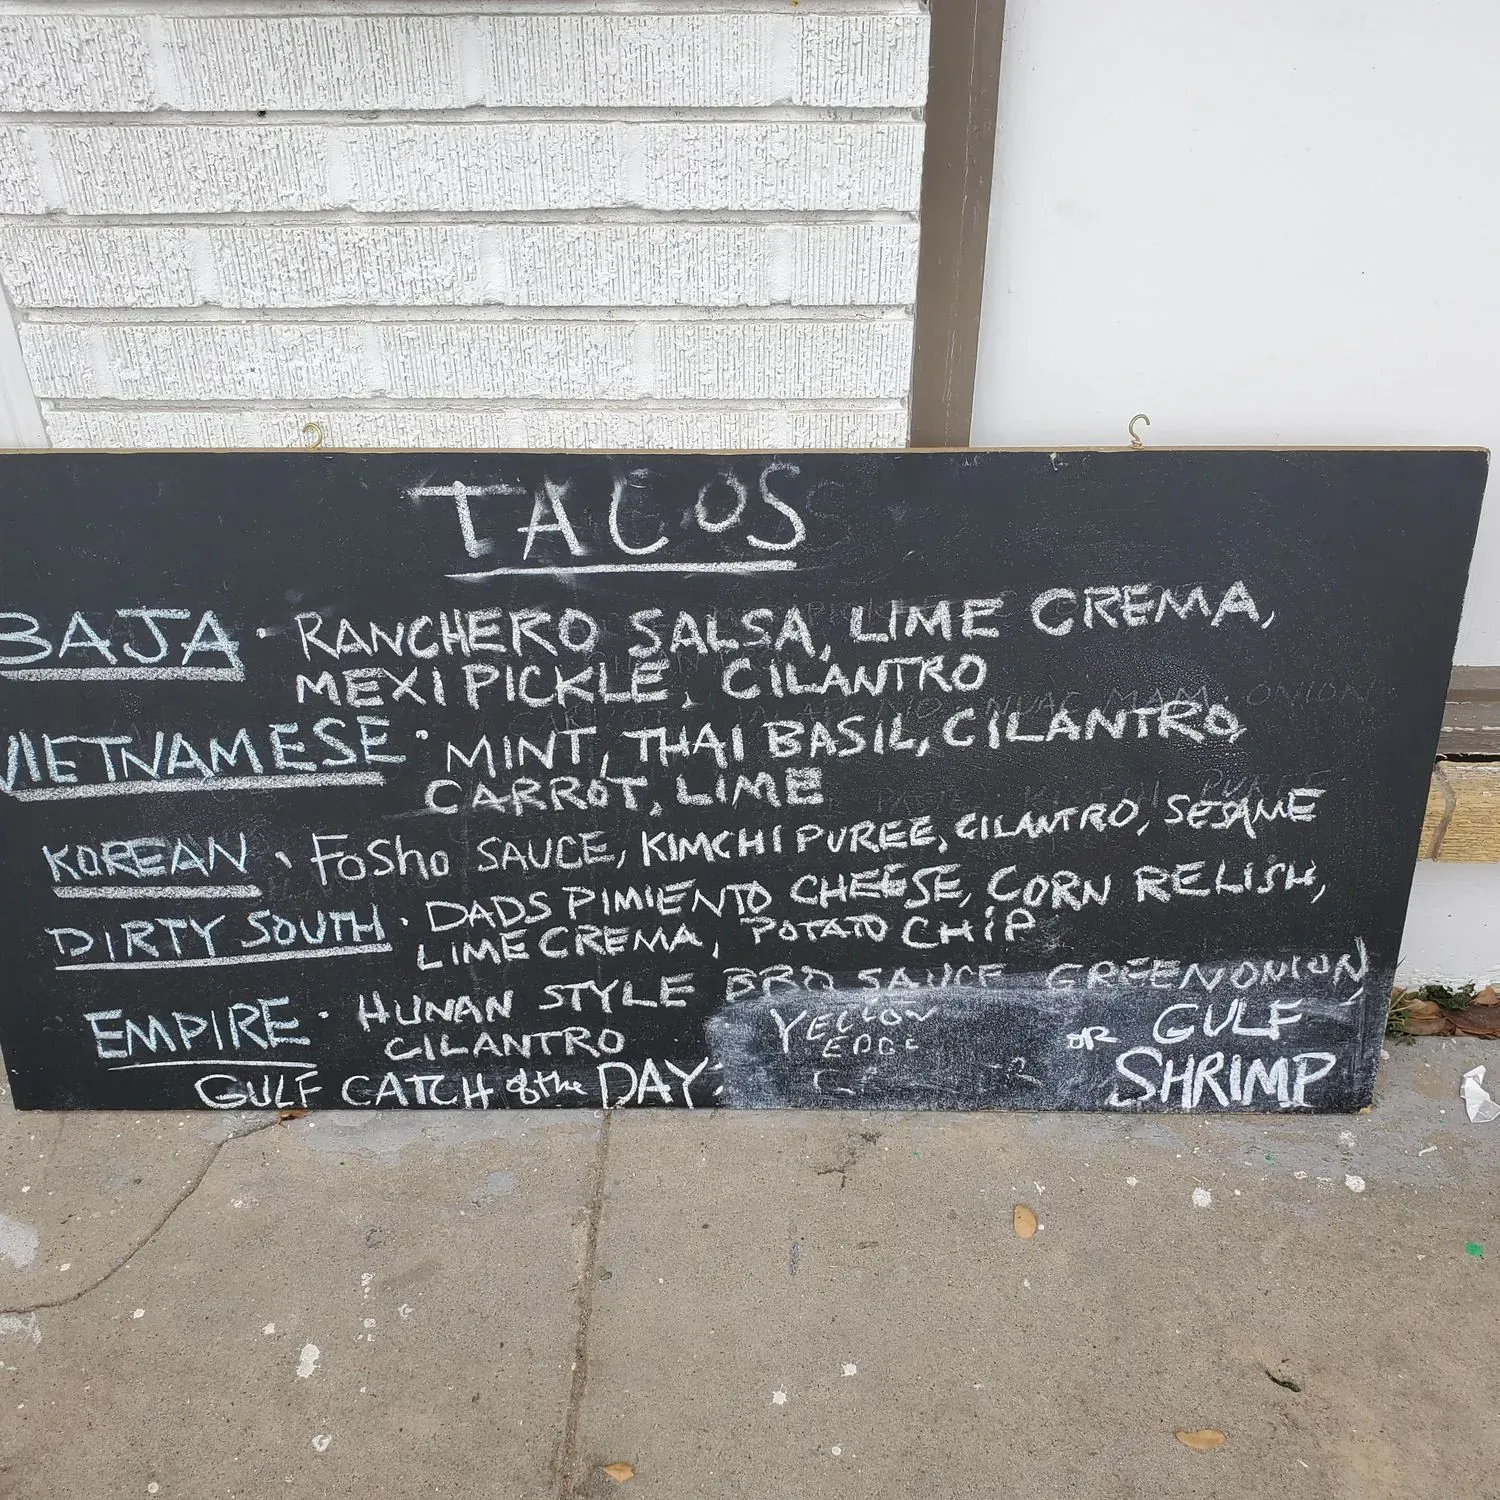 TACOS
BAJA · RANCHERO SALSA, LIME CREMA,
MEXI PICKLE, CILANTRO
VIETNAMESE · MINT, THAI BASIL, CILANTRO,
CARROT, LIME
KOREAN · FOSho SAUCE, KIMCHI PUREE, CILANTRO, SESAME
DIRTY SOUTH · DADS PIMIENTO CHEESE, CORN RELISH,
LIME CREMA, POTATO CHIP
EMPIRE · HUNAN STYLE BBQ SAUCE GREEN ONION,
CILANTRO
GULF CATCH of the DAY: YELLOW EDGE OR GULF SHRIMP